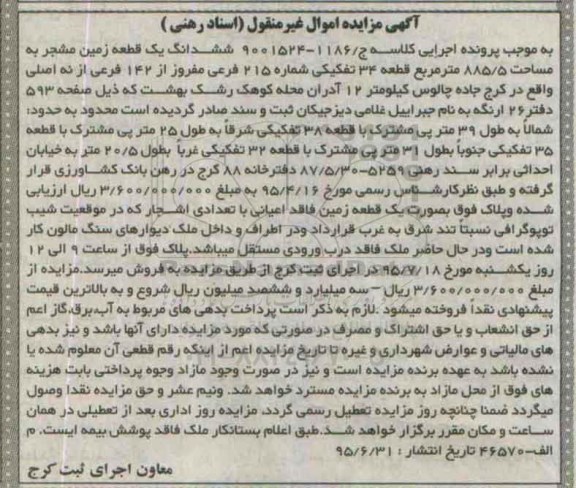 آگهی مزایده اموال غیرمنقول (اسناد رهنی)
به موجب پرونده اجرایی کلاسه ج/۱۱۸۶-۹۰۰۱۵۲۴ ششدانگ یک قطعه زمین مشجر به
مساحت ۸۸۵/۵ مترمربع قطعه ۳۴ تفکیکی شماره ۲۱۵ فرعی مفروز از ۱۴۲ فرعی از نه اصلی
واقع در کرج جاده چالوس کیلومتر ۱۲ آدران محله کوهک رشک بهشت که ذیل صفحه ۵۹۳
دفتر ۲۶ ارنگه به نام جبراییل غلامی دیزجیکان ثبت و سند صادر گردیده است محدود به حدود:
شمالاً به طول ۳۹ متر پی مشترک با قطعه ۳۸ تفکیکی شرقاً به طول ۲۵ متر پی مشترک با قطعه
۳۵ تفکیکی جنوباً بطول ۳۱ متر پی مشترک با قطعه ۳۲ تفکیکی غرباً بطول ۲۰/۵ متر به خیابان
احداثی برابر سند رهنی ۵۲۵۹-۸۷/۵/۳۰ دفترخانه ۸۸ کرج در رهن بانک کشاورزی قرار
گرفته و طبق نظرکارشناس رسمی مورخ ۹۵/۴/۱۶ به مبلغ ۳/۶۰۰/۰۰۰/۰۰۰ ریال ارزیابی
شده وپلاک فوق بصورت یک قطعه زمین فاقد اعیانی با تعدادی اشجار که در موقعیت شیب
توپوگرافی نسبتاً تند شرق به غرب قرارداد ودر اطراف و داخل ملک دیوارهای سنگ مالون کار
شده است ودر حال حاضر ملک فاقد درب ورودی مستقل میباشد.پلاک فوق از ساعت ۹ الی ۱۲
روز یکشنبه مورخ ۹۵/۷/۱۸ در اجرای ثبت کرج از طریق مزایده به فروش میرسد.مزایده از
مبلغ ۳/۶۰۰/۰۰۰/۰۰۰ ریال – سه میلیارد و ششصد میلیون ریال شروع و به بالاترین قیمت
پیشنهادی نقداً فروخته میشود .لازم به ذکر است پرداخت بدهی های مربوط به آب،برق،گاز اعم
از حق انشعاب و یا حق اشتراک و مصرف در صورتی که مورد مزایده دارای آنها باشد و نیز بدهی
های مالیاتی و عوارض شهرداری و غیره تا تاریخ مزایده اعم از اینکه رقم قطعی آن معلوم شده یا
نشده باشد به عهده برنده مزایده است و نیز در صورت وجود مازاد وجوه پرداختی بابت هزینه
های فوق از محل مازاد به برنده مزایده مسترد خواهد شد. ونیم عشر و حق مزایده نقداً وصول
میگردد ضمناً چنانچه روز مزایده تعطیل رسمی گردد، مزایده روز اداری بعد از تعطیلی در همان
ساعت و مکان مقرر برگزار خواهد شد.طبق اعلام بستانکار ملک فاقد پوشش بیمه ایست. م
الف-۴۶۵۷۰ تاریخ انتشار : ۹۵/۶/۳۱
معاون اجرای ثبت کرج